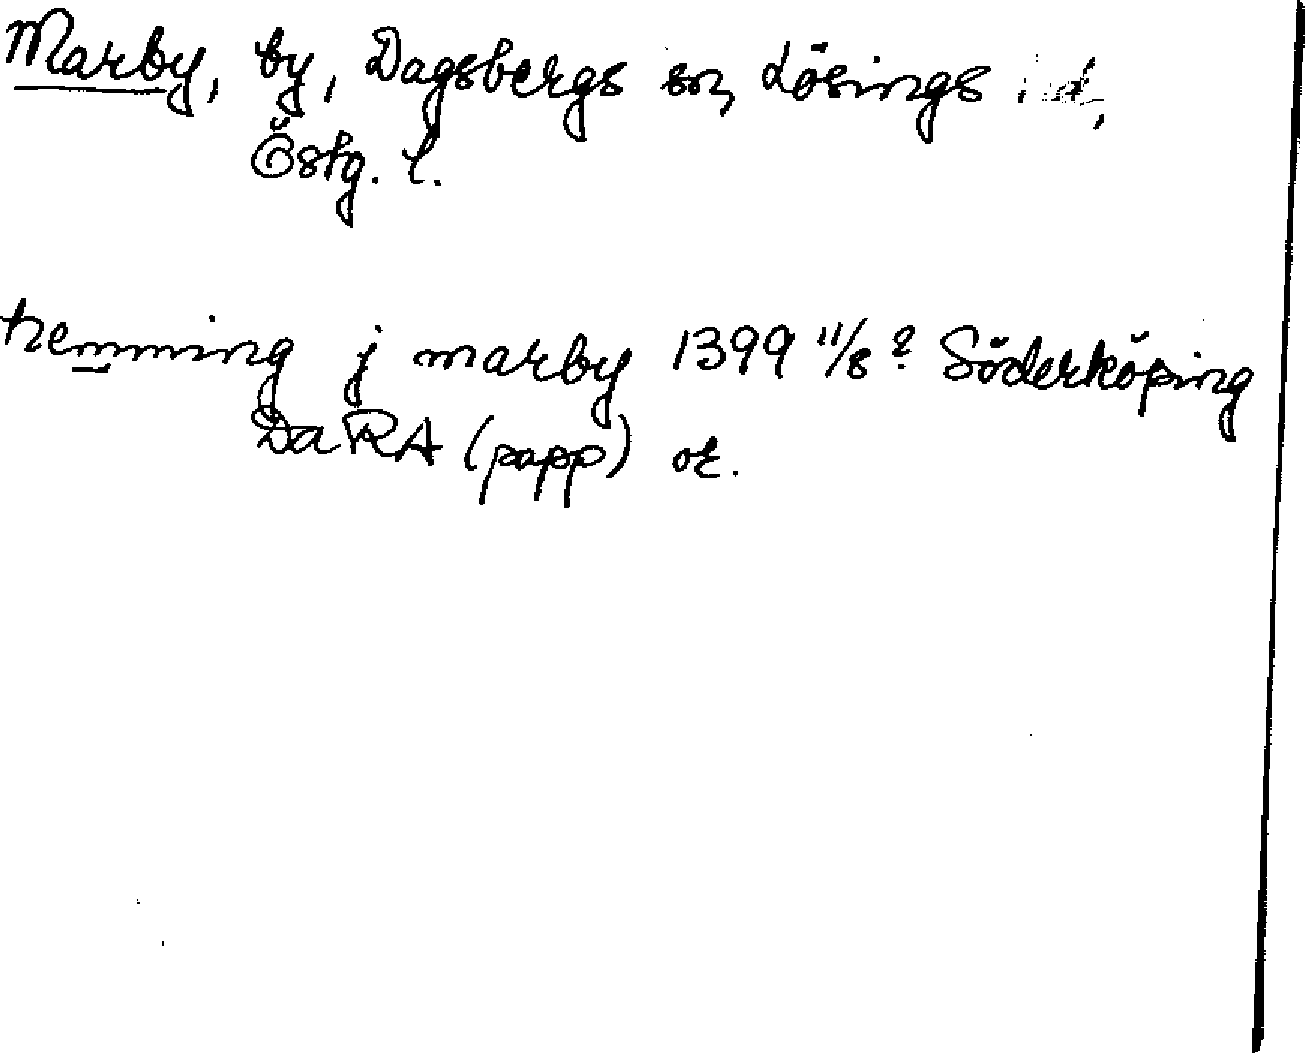 Marby, by, Dagsbergs sn, Lösings hd,
Östg. l.
hemming j marby 1399 11/8? Söderköping
DaRA (papp) or.